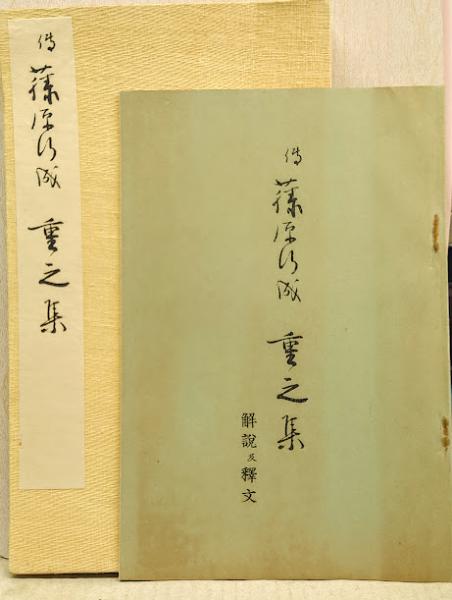 傳 藤原行成 重之集
傳 藤原行成 重之集
解說及釋文